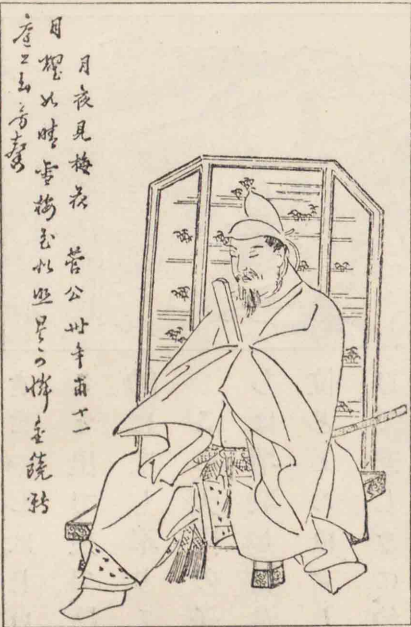 月夜見梅花　菅公　年甫十一
月耀如晴雪梅花似照星可憐金鏡轉
庭上玉房馨